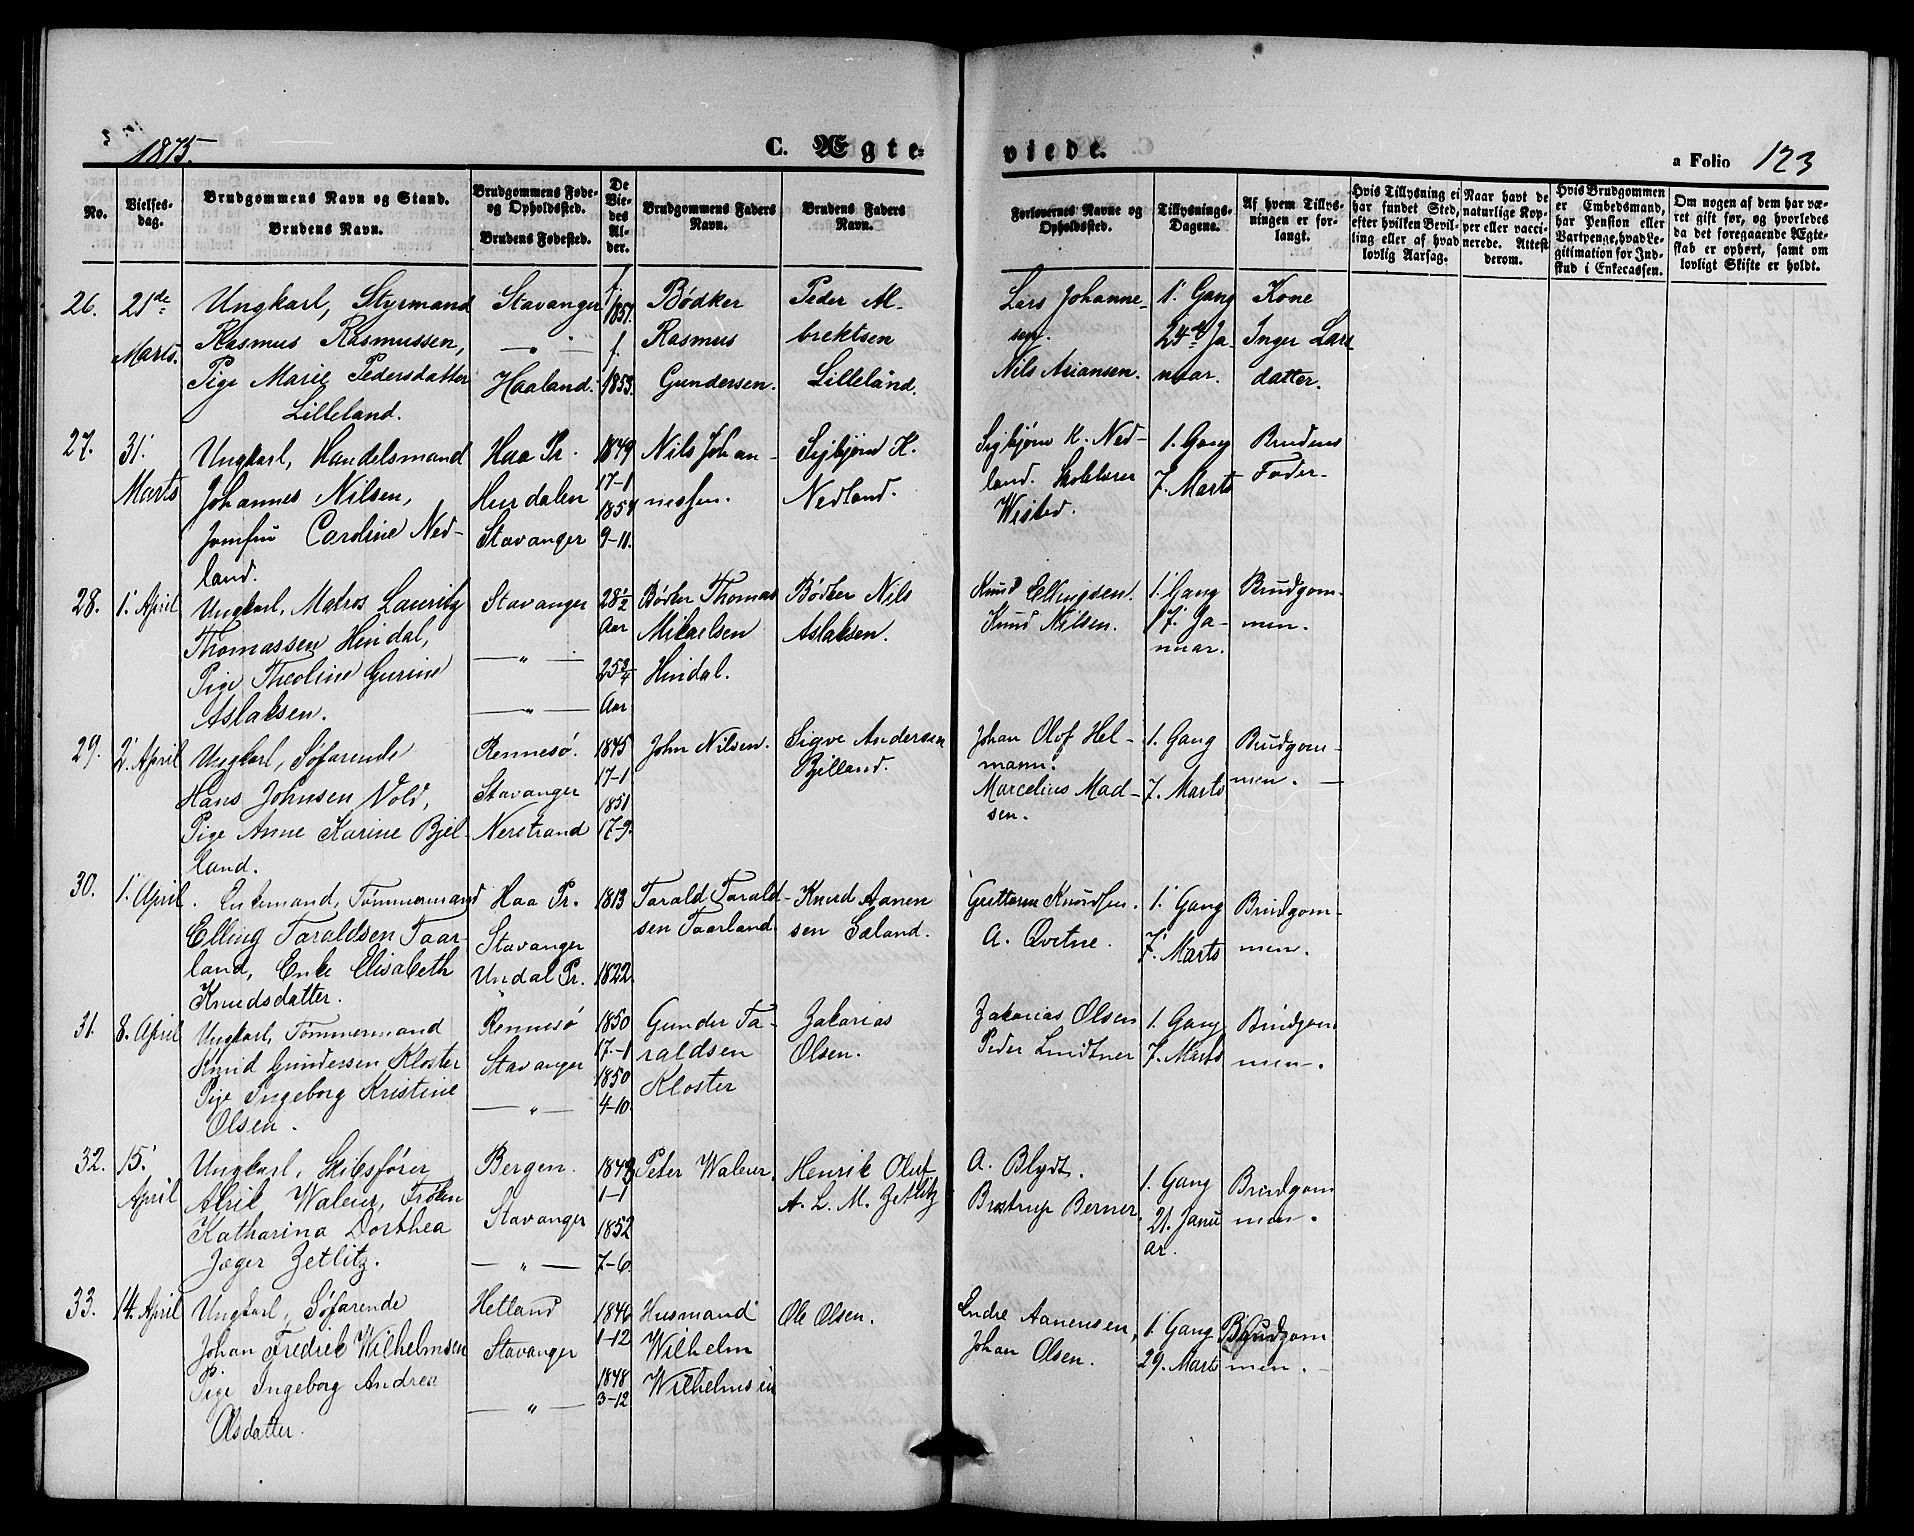 1875.
C. Ægte-
viede.
a Folio 123
No.
Vielses-
dag.
Brudgommens Navn og Stand.
Brudens Navn.
Brudgommens Føde-
og Opholdssted.
Brudens Fødested.
De
Vie-
des
Al-
der.
Brudgommens Faders
Navn.
Brudens Faders
Navn.
Forlovernes Navne og
Opholdssted.
Tillysnings-
Dagene.
Af hvem Tillys-
ningen er for-
langt.
Hvis Tillysning ei
har fundet Sted,
efter hvilken Bevil-
ling eller af hvad
lovlig Aarsag.
Naar havt de
naturlige Kop-
per eller vacci-
nerede. Attest
derom.
Hvis Brudgommen
er Embedsmand,
har Pension eller
Vartpenge, hvad Le-
gitimation for Ind-
skud i Enkecassen.
Om nogen af dem har væ-
ret gift før, og hvorledes
da det foregaaende Ægte-
skab er ophørt, samt om
lovligt Skifte er holdt.
26.
21de
Marts.
Ungkarl, Styrmand
Rasmus Rasmussen,
Pige Marie Pedersdatter
Lilleland.
Stavanger
— „ —
Haaland.
f.
1851.
f.
1853.
Bødker
Rasmus
Gundersen.
Peder Al-
brektsen
Lilleland.
Lars Johanne-
sen.
Nils Asiansen.
1. Gang
24de Ja-
nuar.
Kone
Inger Lars
datter.
27.
31.
Marts
Ungkarl, Handelsmand
Johannes Nilsen,
Jomfru Caroline Ned-
land.
Haa Pr.
Hurdalen
Stavanger
1849
17-1
1854
9-11.
Nils Johan-
nessen.
Sigbjørn H.
Nedland.
Sigbjørn H. Ned-
land. Skolelærer
Wisted.
1. Gang
7. Marts
Brudens
Fader.
28.
1. April
Ungkarl, Matros Lauritz
Thomassen Hindal,
Pige Theoline Gurine
Aslaksen.
Stavanger
— „ —
— „ —
28 1/2
Aar
25 3/4
Aar
Bødker Thomas
Mikaelsen
Hindal.
Bødker Nils
Aslaksen.
Knud Ellingsen.
Knud Nilsen.
1. Gang
17. Ja-
nuar.
Brudgom-
men.
29.
2. April
Ungkarl, Søfarende
Hans Johnsen Vold,
Pige Anne Karine Bjel-
land.
Rennesø.
Stavanger
Nerstrand
1845
17-1
1851
17-9.
John Nilsen.
Sigve Andersen
Bjelland.
Johan Olof Hel-
mann.
Marcelius Mad-
sen.
1. Gang
7. Marts
Brudgom-
men. —
30.
1. April.
Enkemand, Tømmermand
Elling Taraldsen Taar-
land, Enke Elisabeth
Knudsdatter.
Haa Pr.
Stavanger
Undal Pr.
1813
1822
Tarald Tarald-
sen Taarland.
Knud Aanen
sen Sæland.
Guttorm Knudsen.
A. Qvetne.
1. Gang
7. Marts
Brudgom-
men.
31.
8. April
Ungkarl, Tømmermand
Knud Gundersen Kloster
Pige Ingeborg Kristine
Olsen.
Rennesø
Stavanger
— „ —
1850
17-1
1850
4-10.
Gunder Ta-
raldsen
Kloster
Zakarias
Olsen.
Zakarias Olsen
Peder Lindtner
1. Gang
7. Marts
Brudgom-
men.
32.
15.
April
Ungkarl, Skibsfører
Alrik Waleur, Frøken
Katharina Dorthea
Jæger Zetlitz.
Bergen.
Stavanger
— „ —
1848
1-1
1852
7-6
Peter Waleur.
Henrik Oluf
A. L. M. Zetlitz
A. Blydt.
Brostrup Berner.
1. Gang
21. Janu
ar.
Brudgom
men.
33.
14. April
Ungkarl, Søfarende
Johan Fredrik Wilhelmsen
Pige Ingeborg Andrea
Olsdatter.
Hetland
Stavanger
— „ —
1846
1-12
1848
3-12
Husmand
Wilhelm
Wilhelmsen
Ole Olsen.
Endre Aanensen,
Johan Olsen.
1. Gang
29. Marts
Brudgom
men. —